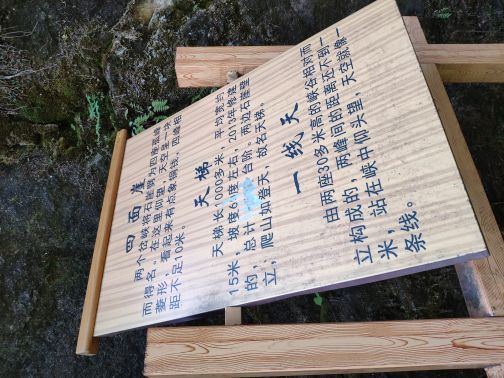 四面崖
两个岔峡将石崖辟为四座孤峰
而得名。在这里仰望，天空呈一块
菱形，看起来有点象铜钱，四峰相
距不足10米。
天梯
天梯长1000多米，平均宽约
15米，坡度60度左右，2013年修建
的，总计 台阶。两边石崖壁
立，爬山如登天，故名天梯。
一线天
由两座30多米高的峡谷相对而
立构成的，两峰间的距离还不到一
米，站在峡中仰头里，天空就像一
条线。